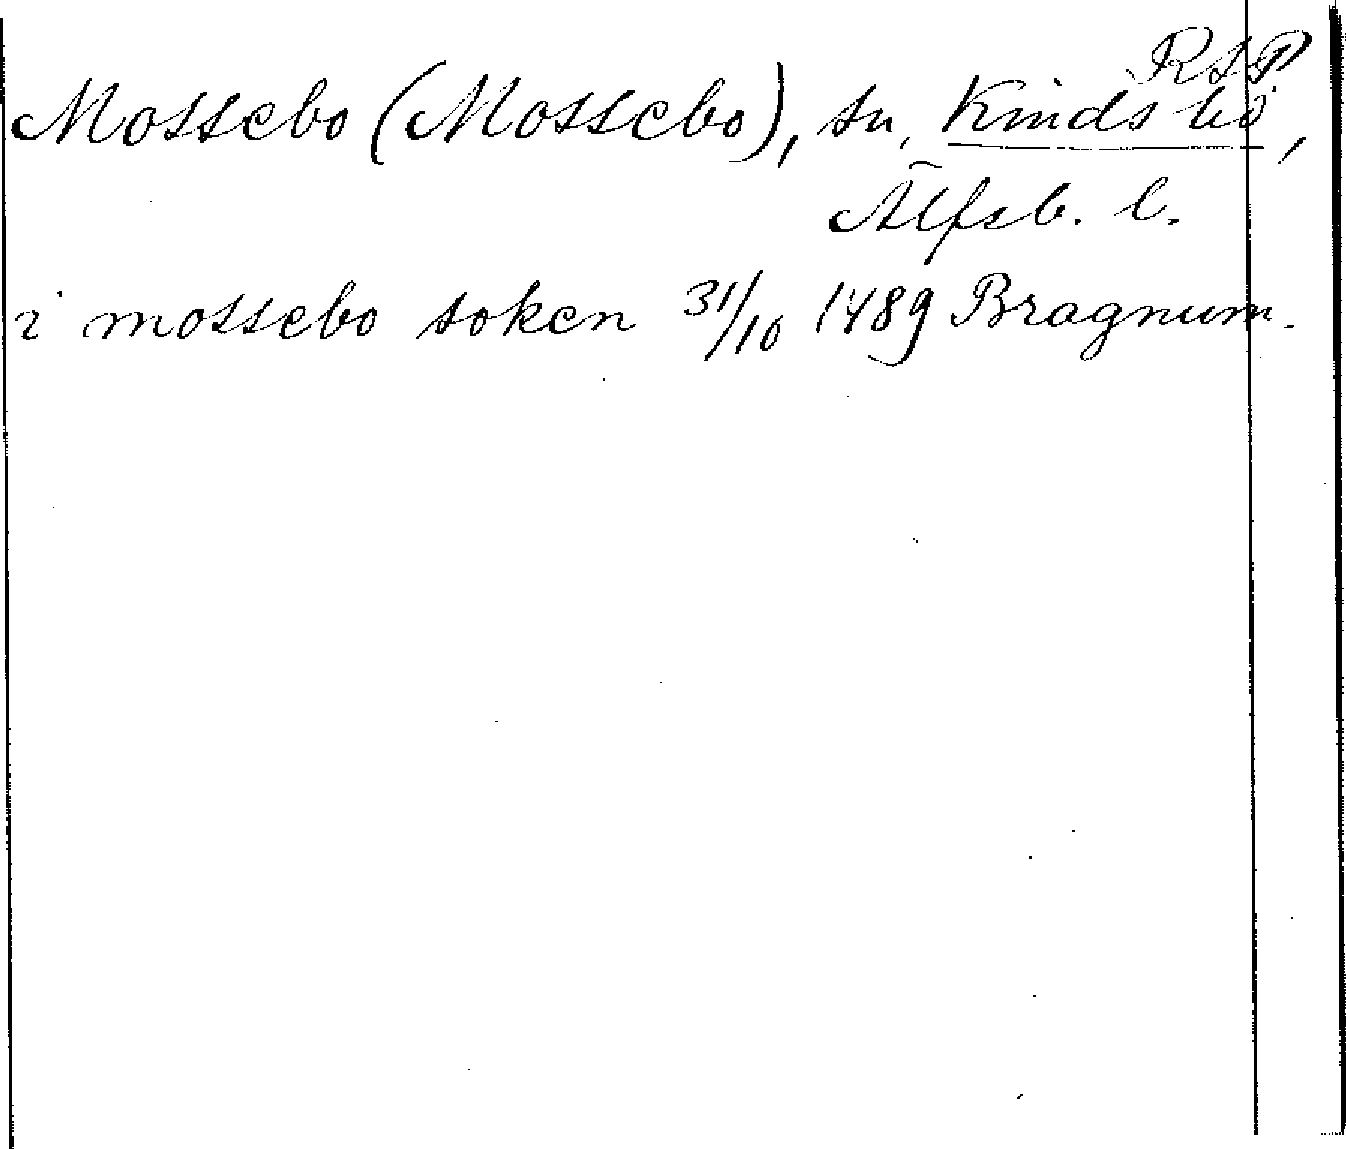 RAP
Mossebo (Mossebo), sn, Kinds hd,
Älfsb. l.
i mossebo soken 31/10 1489 Bragnum.